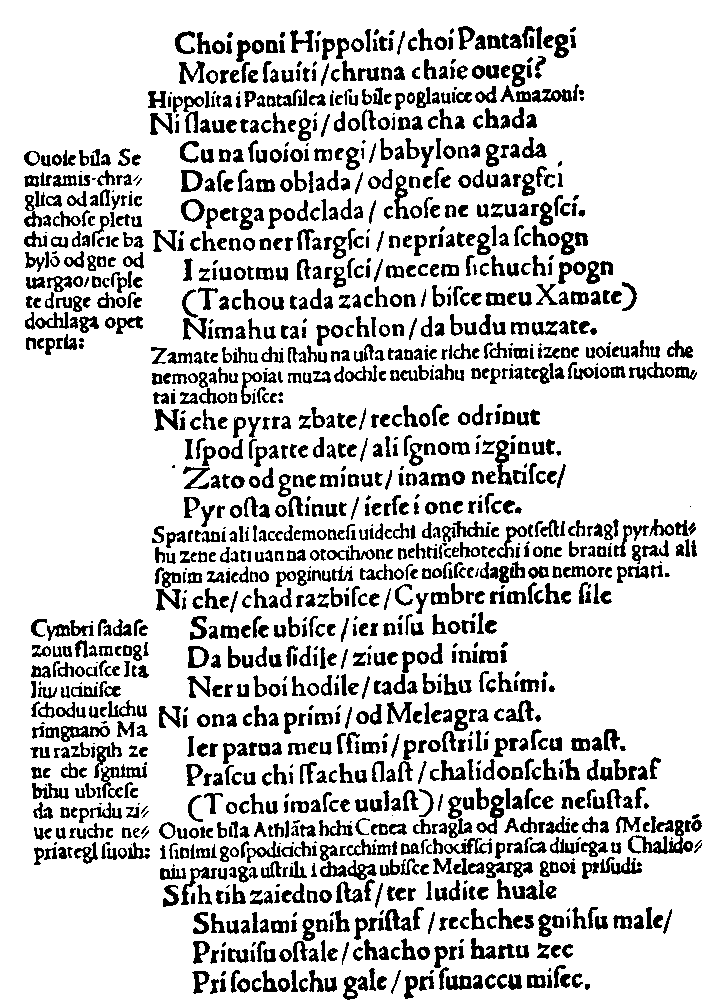 Choi poni Hippoliti/choi Pantasilegi
Morese sauiti/chruna chaie ouegi?
Hippolita i Pantasilea iesu bile poglauice od Amazoni:
Ni ſlaue tachegi/doſtoina cha chada
Cu na ſuoioi megi/babylona grada
Daſe ſam oblada/odgneſe oduargſci
Opetga podclada/choſe ne uzuargſci.
Ouoie bila Se
miramis-chra⸗
glica od aſſyrie
chachoſe pletu
chi cu daſcie ba
bylō od gne od
uargao/neſple
te druge choſe
dochlaga opet
nepria:
Ni cheno ner ſſargſci/nepriategla ſchogn
I ziuotmu ſtargſci/mecem ſichuchi pogn
(Tachou tada zachon/biſce meu Xamate)
Nimahu tai pochlon/da budu muzate.
Zamate bihu chi ſtahu na uſta tanaie riche ſchimi izene uoieuahu che
nemogahu poiat muza dochle neubiahu nepriategla ſuoiom ruchom⸗
tai zachon biſce:
Ni che pyrra zbate/rechoſe odrinut
Iſpod ſparte date/ali ſgnom izginut.
Zato od gne minut/inamo nehtiſce/
Pyr oſta oſtinut/ierſe i one riſce.
Spartani ali lacedemoneſi uidechi dagihchie potſeſti chragl pyr/hoti⸗
hu zene dati uan na otocih/one nehtiſcehotechi i one braniti grad ali
ſgnim zaiedno poginuti/i tachoſe noſiſce/dagih on nemore priati.
Ni che/chad razbiſce/Cymbre rimſche ſile
Sameſe ubiſce/ier niſu hotile
Da budu ſidile/ziue pod inimi
Ner u boi hodile/tada bihu ſchimi.
Cymbri ſadaſe
zouu flamengi
naſchociſce Ita
liu/uciniſce
ſchodu uelichu
rimgnanō Ma
ru razbigih ze
ne che ſgnimi
bihu ubiſceſe
da nepridu zi⸗
ue u ruche ne⸗
priategl ſuoih:
Ni ona cha primi/od Meleagra caſt.
Ier parua meu ſſimi/proſtrili praſcu maſt.
Praſcu chi ſſachu ſlaſt/chalidonſchih dubraf
(Tochu imaſce uulaſt)/gubglaſce neſuſtaf.
Ouoie bila Athlāta hchi Cenea chragla od Achradie cha ſMeleagrō
i ſinimi goſpodicichi garcchimi naſchociſſci praſca diuiega u Chalido⸗
niu paruaga uſtrili i chadga ubiſce Meleagarga gnoi priſudi:
Sſih tih zaiedno ſtaf/ter ludite huale
Shualami gnih priſtaf/rechches gnihſu male/
Prituiſu oſtale/chacho pri hartu zec
Pri ſocholchu gale/pri ſunaccu miſec.